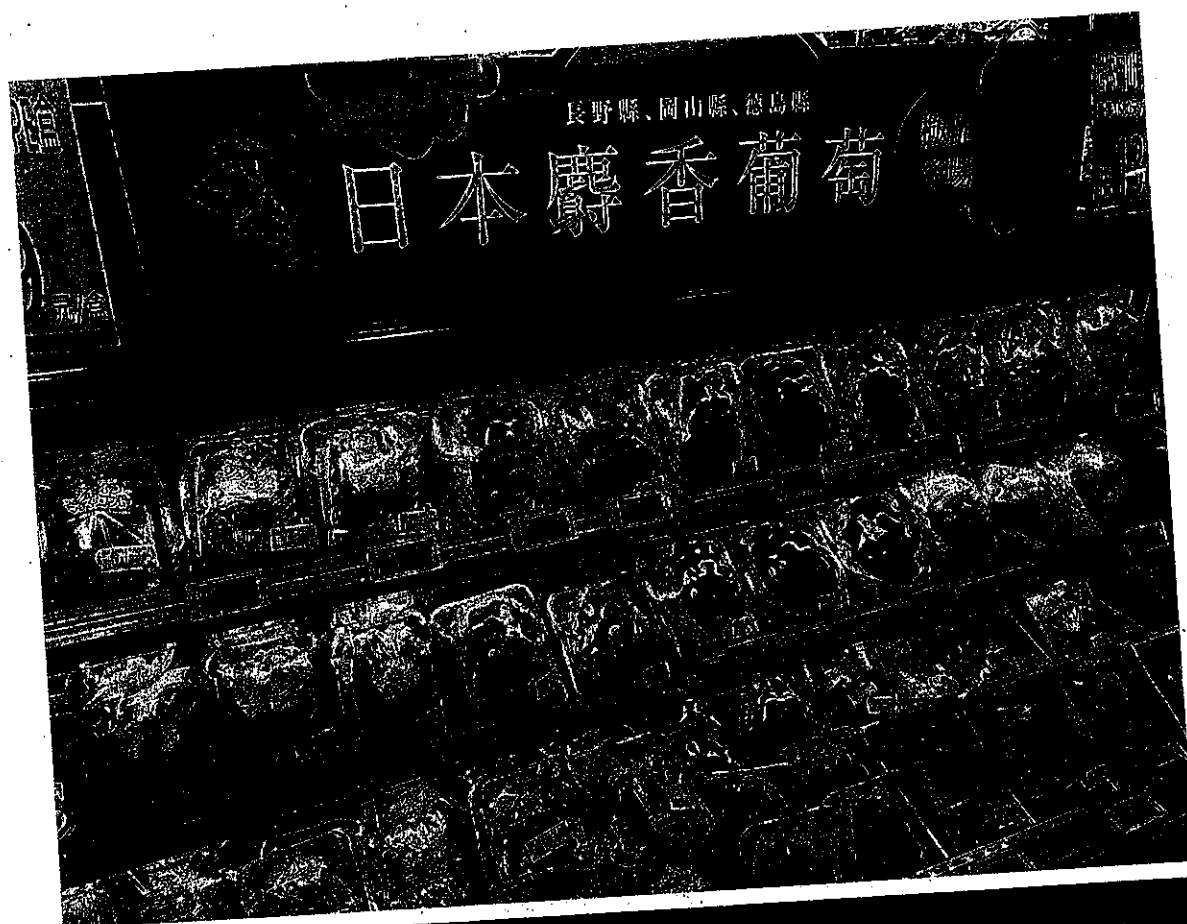 長野縣、岡山縣、德島縣
日本麝香葡萄